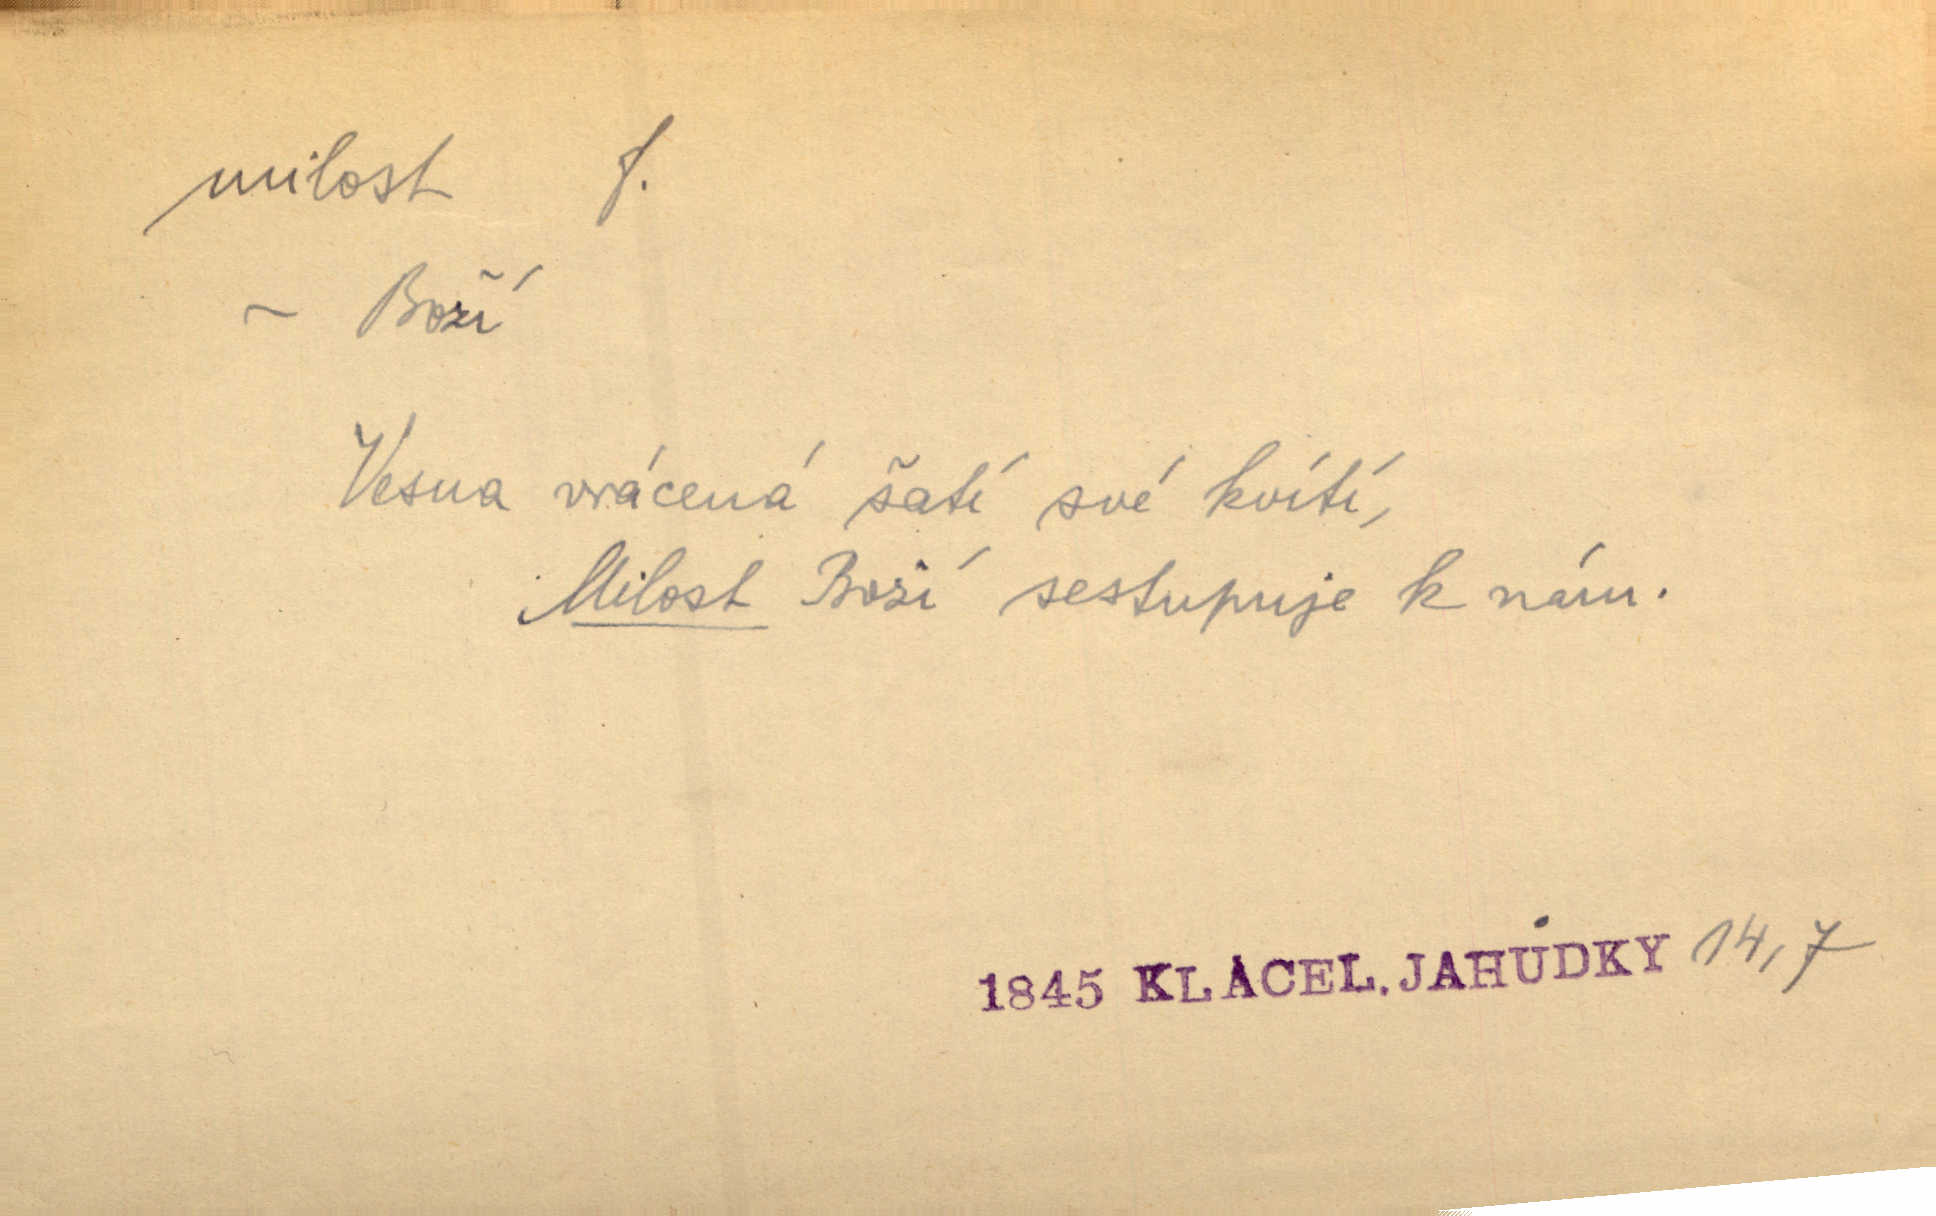 milost f.
~ Boží
Vesna vrácená šatí své kvítí,
Milost Boží sestupuje k nám.
1845 KLÁCEL, JAHŮDKY 14,7